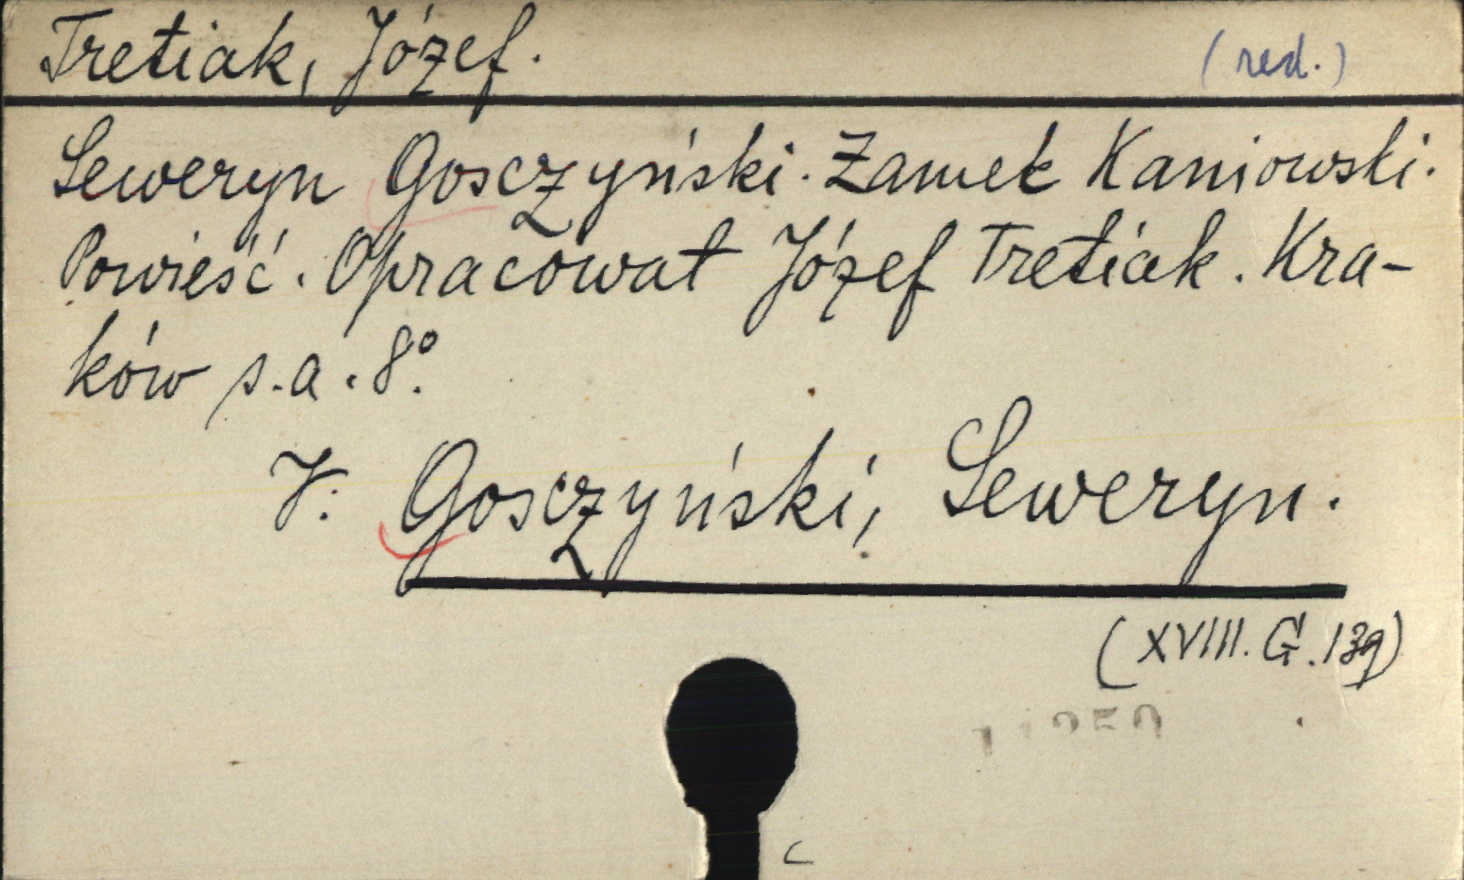 Tretiak, Józef. (red.)
Seweryn Gosczyński. Zamek Kaniowski.
Powieść. Opracował Józef Tretiak. Kra-
ków s.a. 8°.
V: Gosczyński, Seweryn.
(XVIII. G. 139)
c